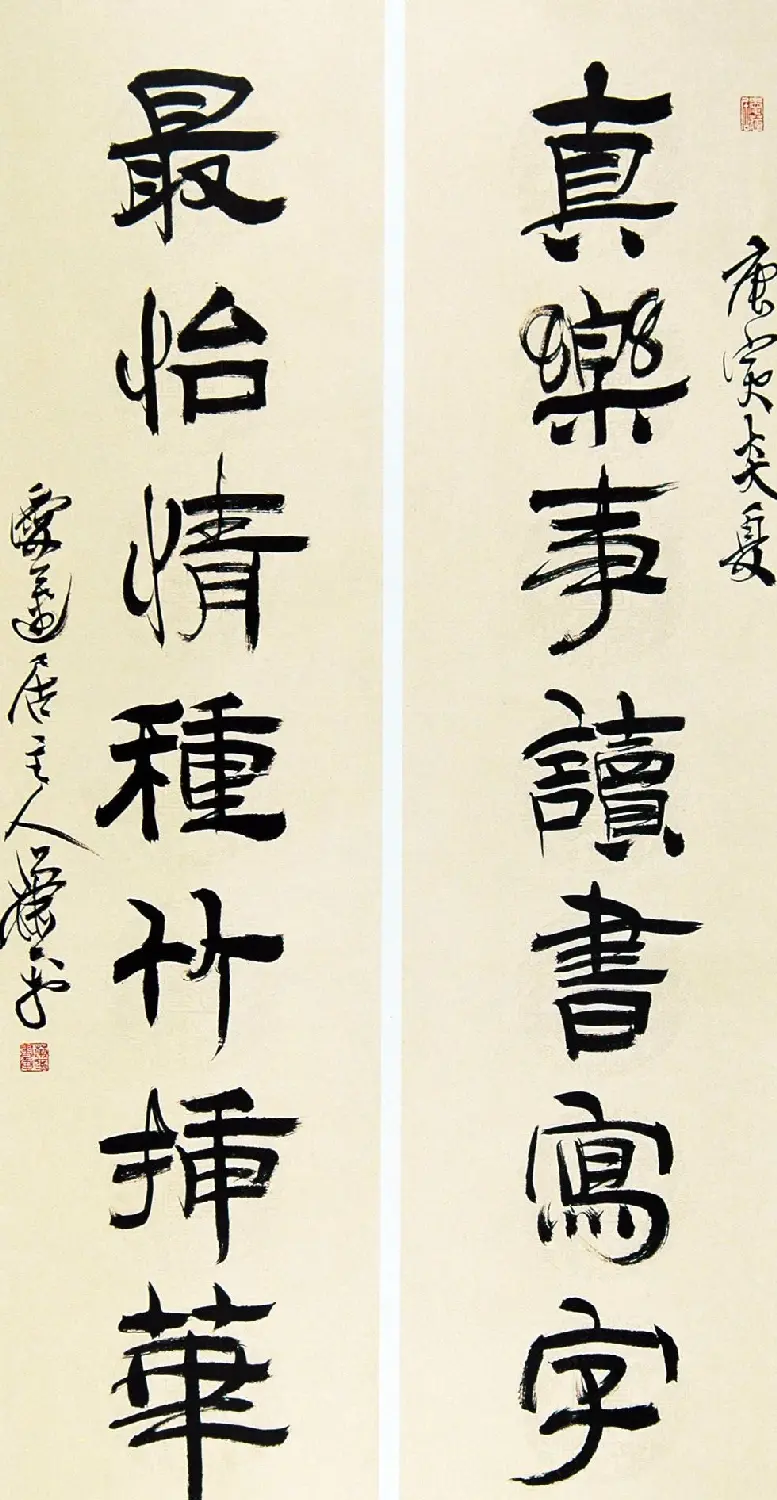 庚寅炎夏
真樂事讀書寫字
最怡情種竹插華
居主人